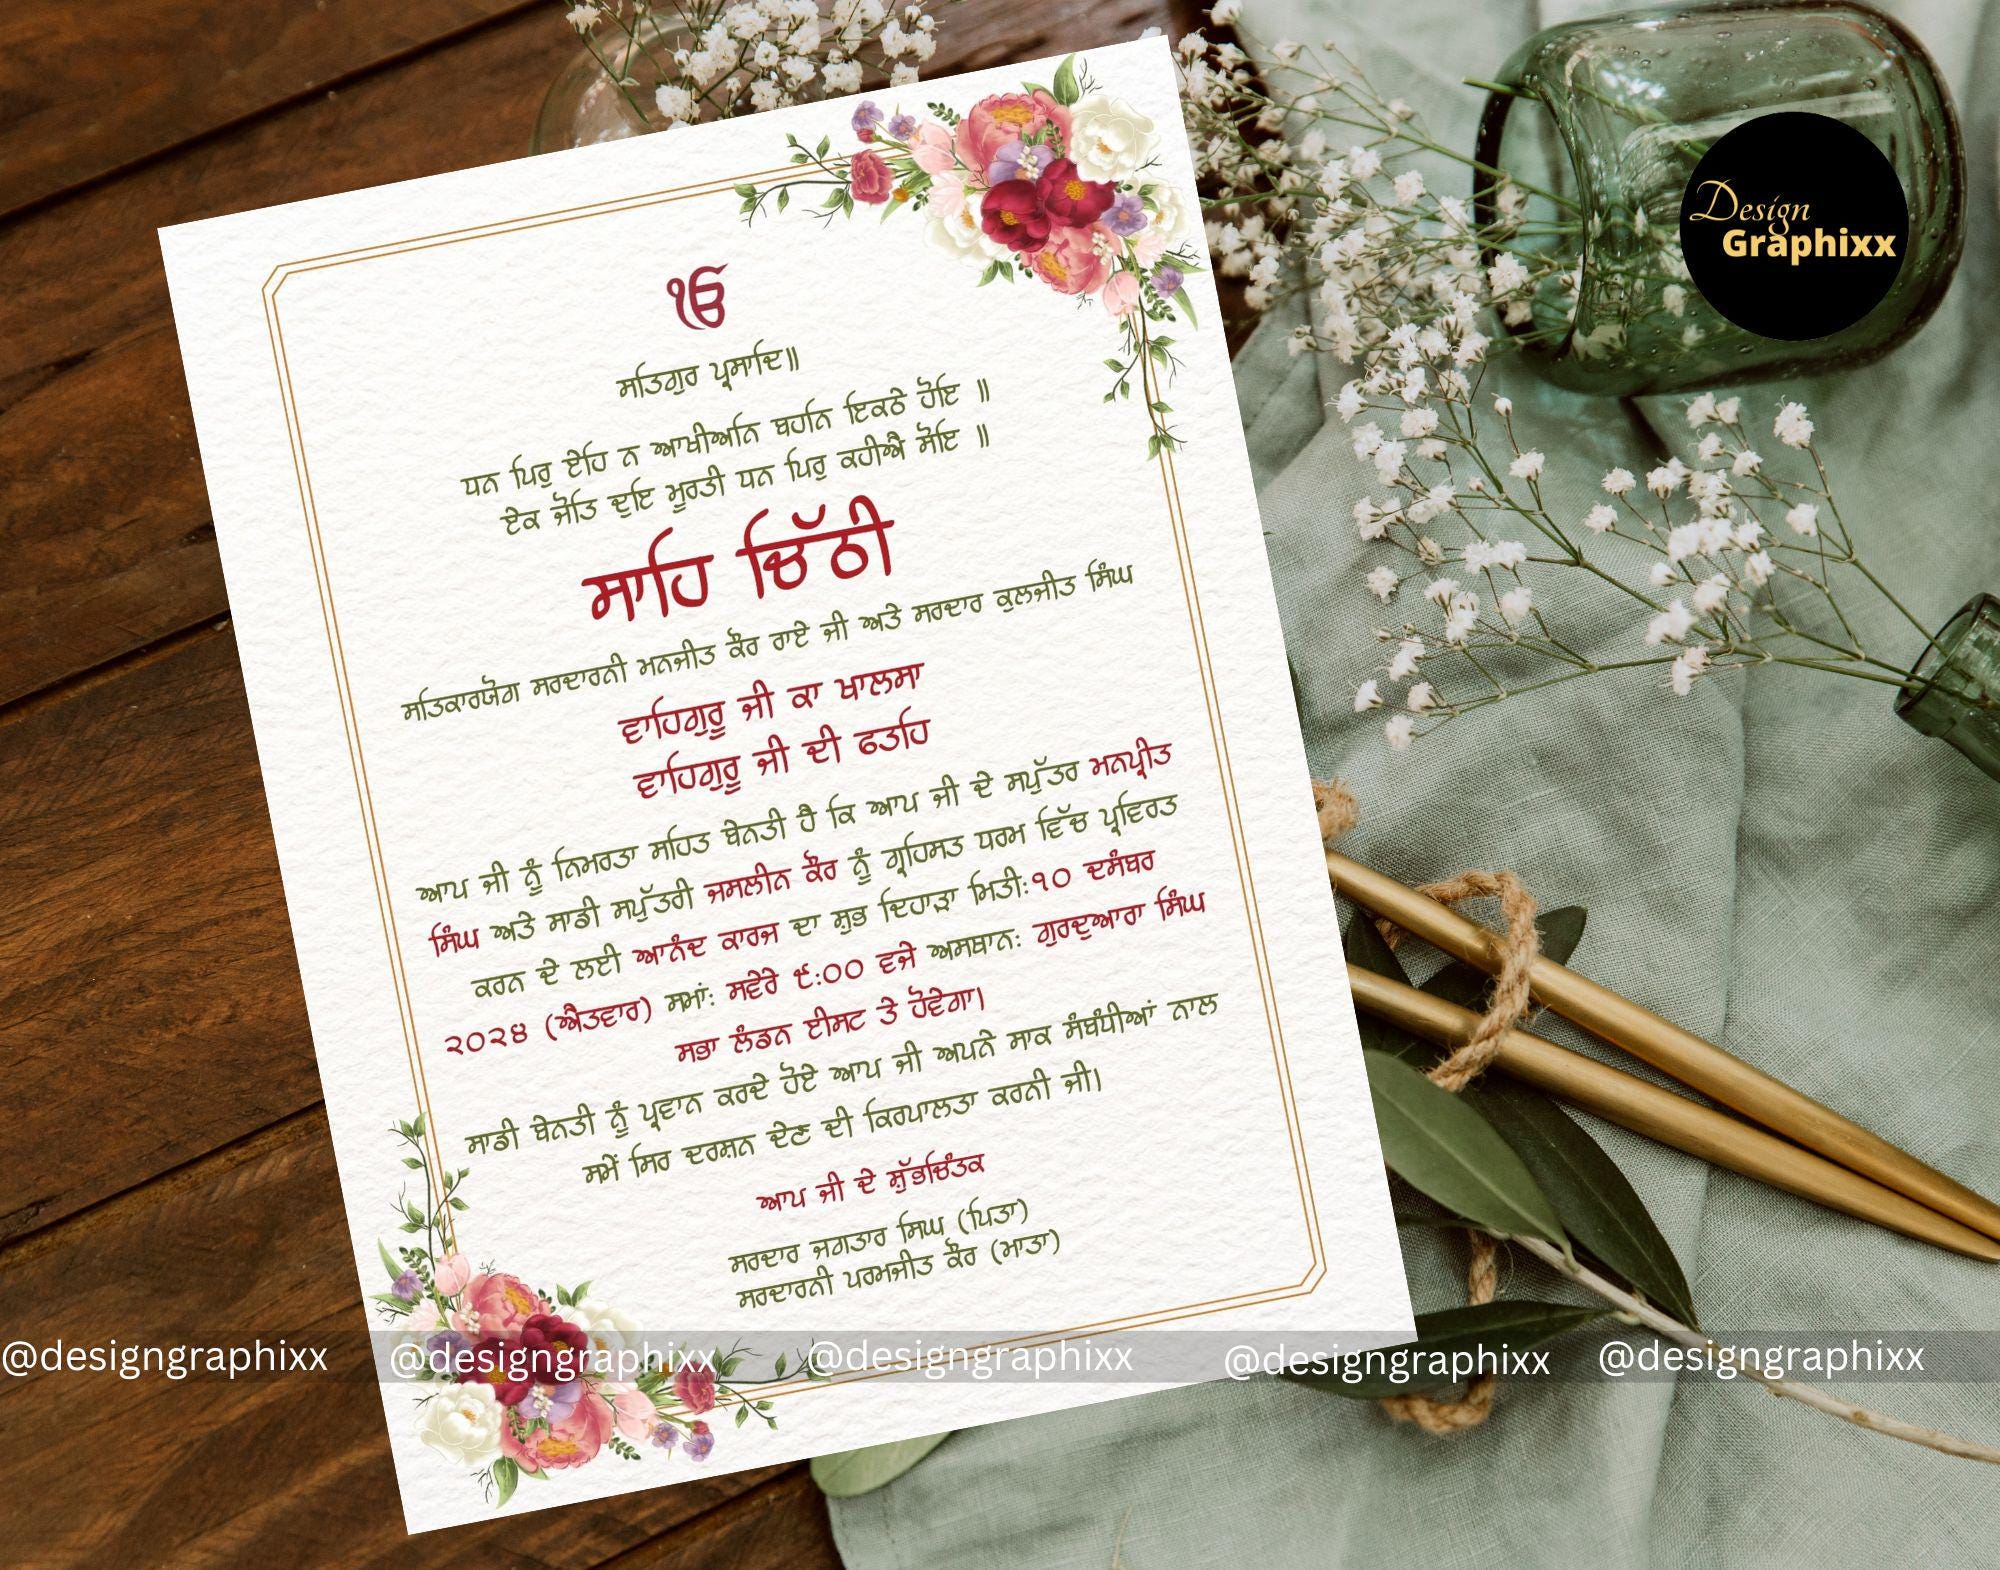 ੴ
ਸਤਿਗੁਰ ਪ੍ਰਸਾਦਿ॥
ਧਨ ਪਿਰੁ ਏਹਿ ਨ ਆਖੀਅਨਿ ਬਹਨਿ ਇਕਠੇ ਹੋਇ ॥
ਏਕ ਜੋਤਿ ਦੁਇ ਮੂਰਤੀ ਧਨ ਪਿਰੁ ਕਹੀਐ ਸੋਇ ॥
ਸਾਹਿ ਚਿੱਠੀ
ਸਤਿਕਾਰਯੋਗ ਸਰਦਾਰਨੀ ਮਨਜੀਤ ਕੌਰ ਰਾਏ ਜੀ ਅਤੇ ਸਰਦਾਰ ਕੁਲਜੀਤ ਸਿੰਘ
ਵਾਹਿਗੁਰੂ ਜੀ ਕਾ ਖਾਲਸਾ
ਵਾਹਿਗੁਰੂ ਜੀ ਦੀ ਫਤਹਿ
ਆਪ ਜੀ ਨੂੰ ਨਿਮਰਤਾ ਸਹਿਤ ਬੇਨਤੀ ਹੈ ਕਿ ਆਪ ਜੀ ਦੇ ਸਪੁੱਤਰ ਮਨਪ੍ਰੀਤ
ਸਿੰਘ ਅਤੇ ਸਾਡੀ ਸਪੁੱਤਰੀ ਜਸਲੀਨ ਕੌਰ ਨੂੰ ਗ੍ਰਹਿਸਤ ਧਰਮ ਵਿੱਚ ਪ੍ਰਵਿਰਤ
ਕਰਨ ਦੇ ਲਈ ਆਨੰਦ ਕਾਰਜ ਦਾ ਸ਼ੁਭ ਦਿਹਾੜਾ ਮਿਤੀ:੧੦ ਦਸੰਬਰ
੨੦੨੪ (ਐਤਵਾਰ) ਸਮਾਂ: ਸਵੇਰੇ ੯:੦੦ ਵਜੇ ਅਸਥਾਨ: ਗੁਰਦੁਆਰਾ ਸਿੰਘ
ਸਭਾ ਲੰਡਨ ਈਸਟ ਤੇ ਹੋਵੇਗਾ।
ਸਾਡੀ ਬੇਨਤੀ ਨੂੰ ਪ੍ਰਵਾਨ ਕਰਦੇ ਹੋਏ ਆਪ ਜੀ ਅਪਨੇ ਸਾਕ ਸੰਬੰਧੀਆਂ ਨਾਲ
ਸਮੇਂ ਸਿਰ ਦਰਸ਼ਨ ਦੇਣ ਦੀ ਕਿਰਪਾਲਤਾ ਕਰਨੀ ਜੀ।
ਆਪ ਜੀ ਦੇ ਸ਼ੁੱਭਚਿੰਤਕ
ਸਰਦਾਰ ਜਗਤਾਰ ਸਿਘ (ਪਿਤਾ)
ਸਰਦਾਰਨੀ ਪਰਮਜੀਤ ਕੌਰ (ਮਾਤਾ)
Design
Graphixx
@designgraphixx @designgraphixx @designgraphixx @designgraphixx @designgraphixx